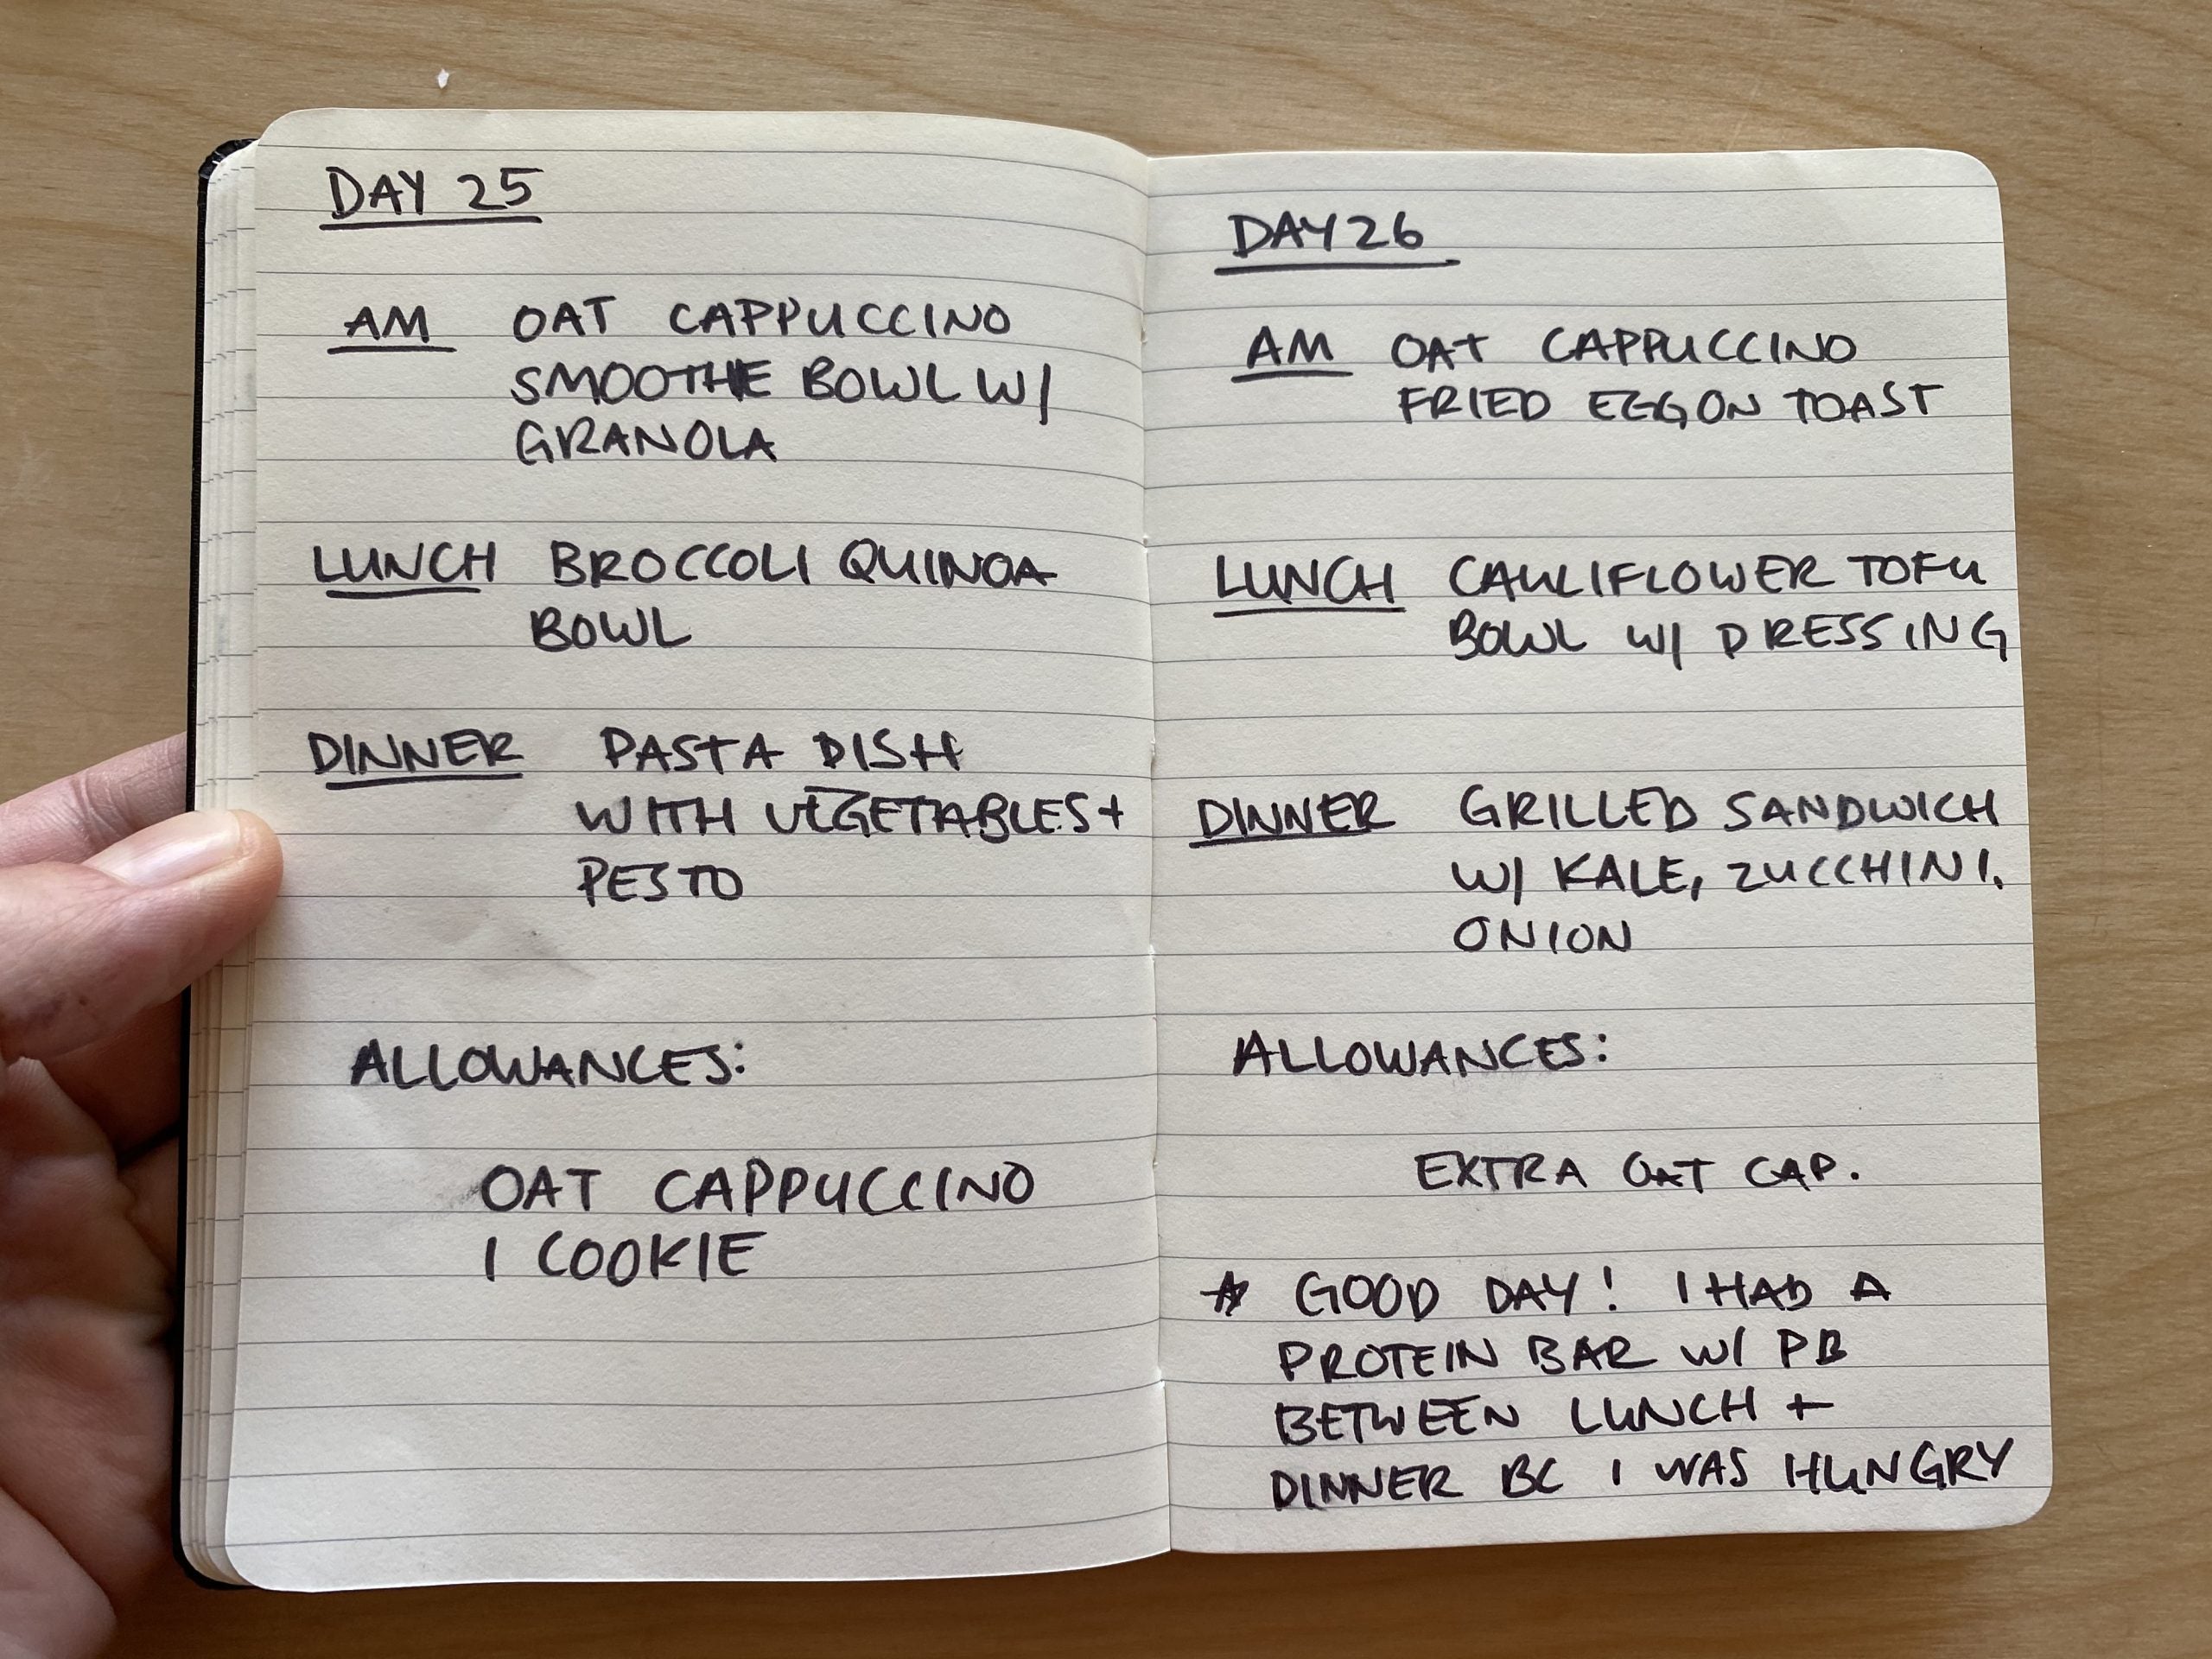 DAY 25
AM OAT CAPPUCCINO
SMOOTHE BOWL W/
GRANOLA
LUNCH BROCCOLI QUINOA
BOWL
DINNER PASTA DISH
WITH VEGETABLES +
PESTO
ALLOWANCES:
OAT CAPPUCCINO
1 COOKIE
DAY 26
AM OAT CAPPUCCINO
FRIED EGG ON TOAST
LUNCH CAULIFLOWER TOFU
BOWL W/ DRESSING
DINNER GRILLED SANDWICH
W/ KALE, ZUCCHINI,
ONION
ALLOWANCES:
EXTRA OAT CAP.
☆ GOOD DAY! I HAD A
PROTEIN BAR W/ PB
BETWEEN LUNCH +
DINNER BC I WAS HUNGRY